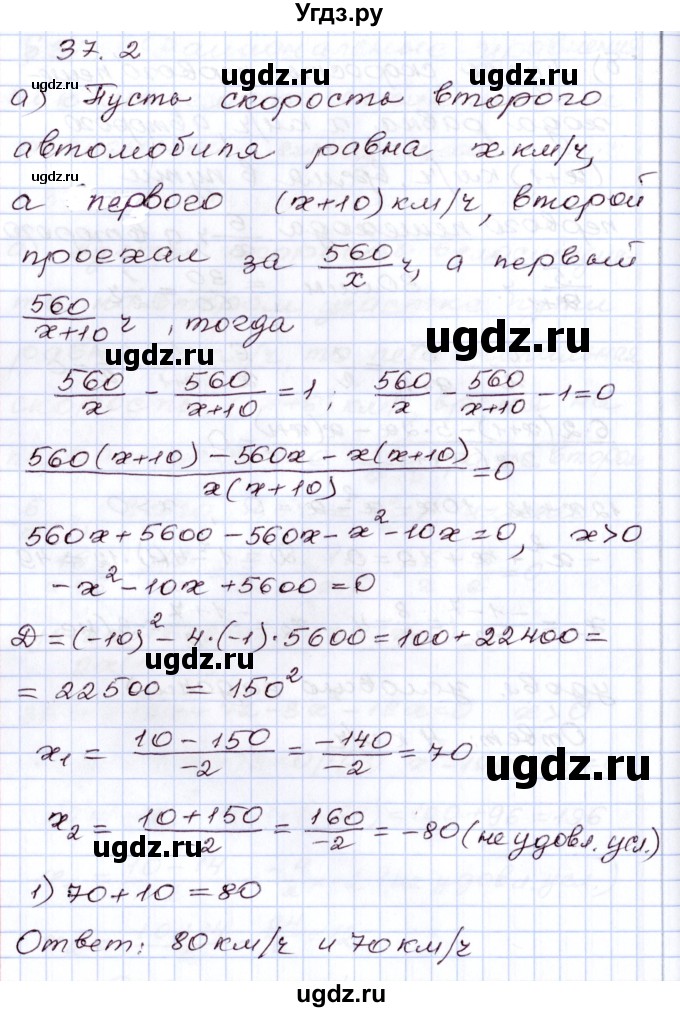 Угдз.ру
37. 2
ugdz.ru
ugdz.ru
а) Пусть скорость второго
автомобиля равна x км/ч,
ugdz.ru
а первого (x+10) км/ч, второй
проехал за 560/x ч, а первый
560/(x+10) ч, тогда
ugdz.ru
ugdz.ru
560/x - 560/(x+10) = 1 ; 560/x - 560/(x+10) - 1 = 0
(560(x+10) - 560x - x(x+10))/(x(x+10)) = 0
560x + 5600 - 560x - x² - 10x = 0, x > 0
-x² - 10x + 5600 = 0
Д = (-10)² - 4·(-1)·5600 = 100 + 22400 =
ugdz.ru
= 22500 = 150²
x₁ = (10 - 150)/-2 = -140/-2 = 70
ugdz.ru
x₂ = (10 + 150)/-2 = 160/-2 = -80 (не удовл. усл.)
ugdz.ru
1) 70 + 10 = 80
Ответ: 80 км/ч и 70 км/ч
ugdz.ru
ugdz.ru